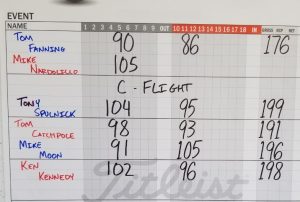 EVENT
NAME 1 2 3 4 5 6 7 8 9 OUT 10 11 12 13 14 15 16 17 18 IN GROSS HCP NET
TOM FANNING 90 86 176
MIKE NARDOLILLO 105
C - FLIGHT
TONY SPULNICK 104 95 199
TOM CATCHPOLE 98 93 191
MIKE MOON 91 105 196
KEN KENNEDY 102 96 198
Titleist